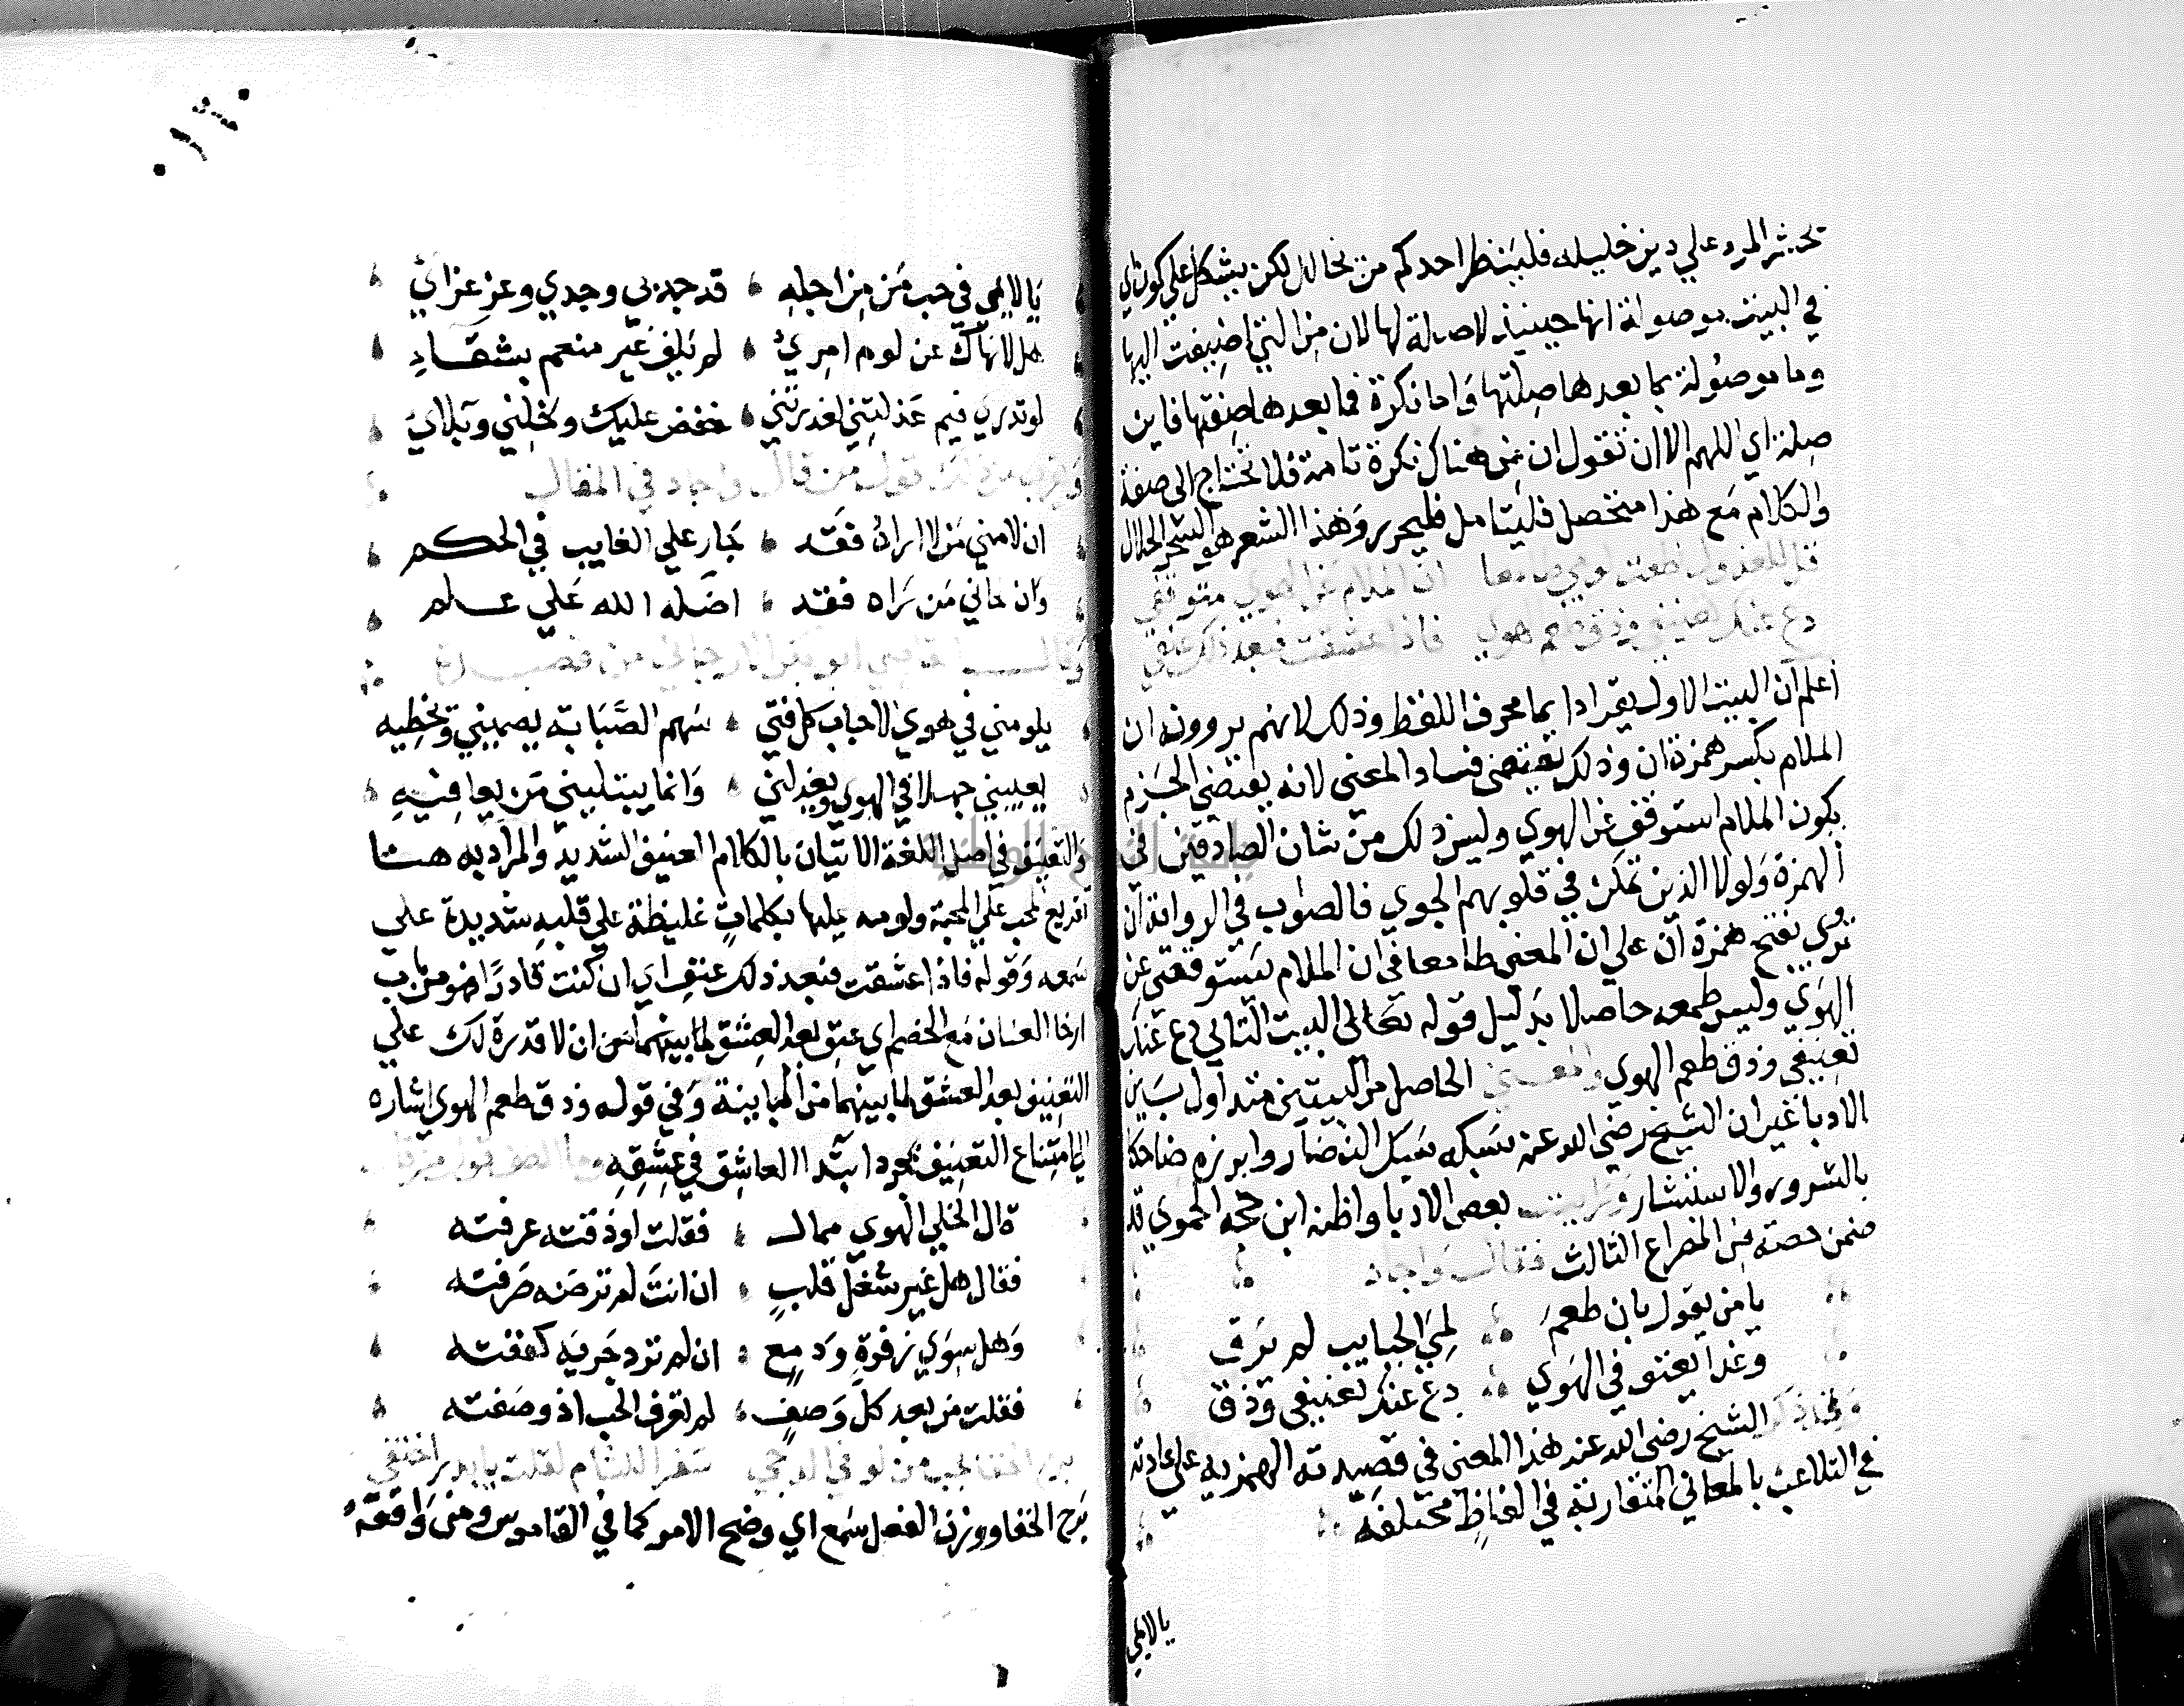 يحشر المرء علي دين خليله فلينظر احدكم من يخالل لكن يشكل علي كون اي
في البيت موصولة انها حينيذ لاصلة لها لان من التي اضيفت اليها
وما موصولة بما بعدها صلتها واما نكرة فما بعدها صفتها فاين
صلة اي اللهم الا ان تقول ان من هناك نكرة تامة فلا تحتاج الي صفة
والكلام مع هذا متحصل فليتامل فليحرر وهذا الشعر هو السحر الحلال
قل للعذول اطلت لومي طامعا ان الملام عن الهوي مستوقفي
دع عنك تعنيفي وذق طعم الهوي فاذا عشقت فبعد ذلك عنف
اعلم ان البيت الاول يقرا دايما محرف اللفظ وذلك لانهم يروونه ان
الملام بكسر همزة ان وذلك يقتضي فساد المعني لانه يقتضي الجزم
بكون الملام استوقف عن الهوي وليس ذلك من شان الصادقين في
الهمزة ولولا الذين تمكن في قلوبهم الجوي فالصواب في الرواية ان
تروي بفتح همزة ان علي ان المعني طامعا في ان الملام يستوقفني عن
الهوي وليس طمعه حاصلا بدليل قوله تعالي البيت التالي دع عنك
تعنيفي وذق طعم الهوي والمعني الحاصل من البيتين متداول بين
الادبا غير ان الشيخ رضي الله عنه سبكه سبك النضار وابرزه ضاحكا
بالسرور والاستبشار ورايت بعض الادبا واظنه ابن حجه الحموي قد
ضمن حصته من المصراع الثالث فقال واجاد
يا من يقول بان طعم لمي الحبايب لم يرق
وغدا يعنف في الهوي دع عنك تعنيفي وذق
وقد ذكر الشيخ رضي الله عنه هذا المعني في قصيدته الهمزيه علي عادته
في التلاعب بالمعاني المتقاربة في الفاظ مختلفة
يا لايمي
٠١٦٠
يا لايمي في حب من من اجله قد جد بي وجدي وعز عزاي
هلا نهاك نهاك عن لوم امري لم يلف غير منعم بشقاء
لو تدري فيم عذلتني لعذرتني خفض عليك وخلني وبلاي
وقريب من ذلك قول من قال واجاد في المقال
ان لامني من لا اراه فقد جار علي الغايب في الحكم
وان لحاني من يراه فقد اضله الله علي علم
وقال القاضي ابو بكر الارجاني من قصيدة
يلومني في هوي الاحباب كل فتي سهم الصبابة يصميني وتخطيه
يعيبني جهلا في الهوي ويعذلني وانما يبتليني من يعافيه
والتعنيف في اصل اللغة الاتيان بالكلام العنيف الشديد والمراد به هنا
تقريع المحب علي المحبة ولومه عليها بكلمات غليظة علي قلبه شديدة علي
سمعه وقوله فاذا عشقت فبعد ذلك عنف اي ان كنت قادرا فهو من باب
ارخا العنان مع الخصم اي عنف بعد العشق لما بينهما من ان لا قدرة لك علي
التعنيف بعد العشق لما بينهما من المباينة وفي قوله وذق طعم الهوي اشارة
الي امتناع التعنيف بمجرد ابتدا العاشق في عشقه وما الطف قول من قال
قال الخلي الهوي محال فقلت لو ذقته عرفته
فقال هل غير شغل قلب ان انت لم ترضه صرفته
وهل سوي زفرة ودمع ان لم ترد جريه كففته
فقلت من بعد كل وصف لم تعرف الحب اذ وصفته
برح الخفا بحب من لو في الدجي سفر اللثام لقلت يا بدر اختفي
برح الخفا ووزن الفعل سمع اي وضح الامر كما في القاموس ومن وافقه